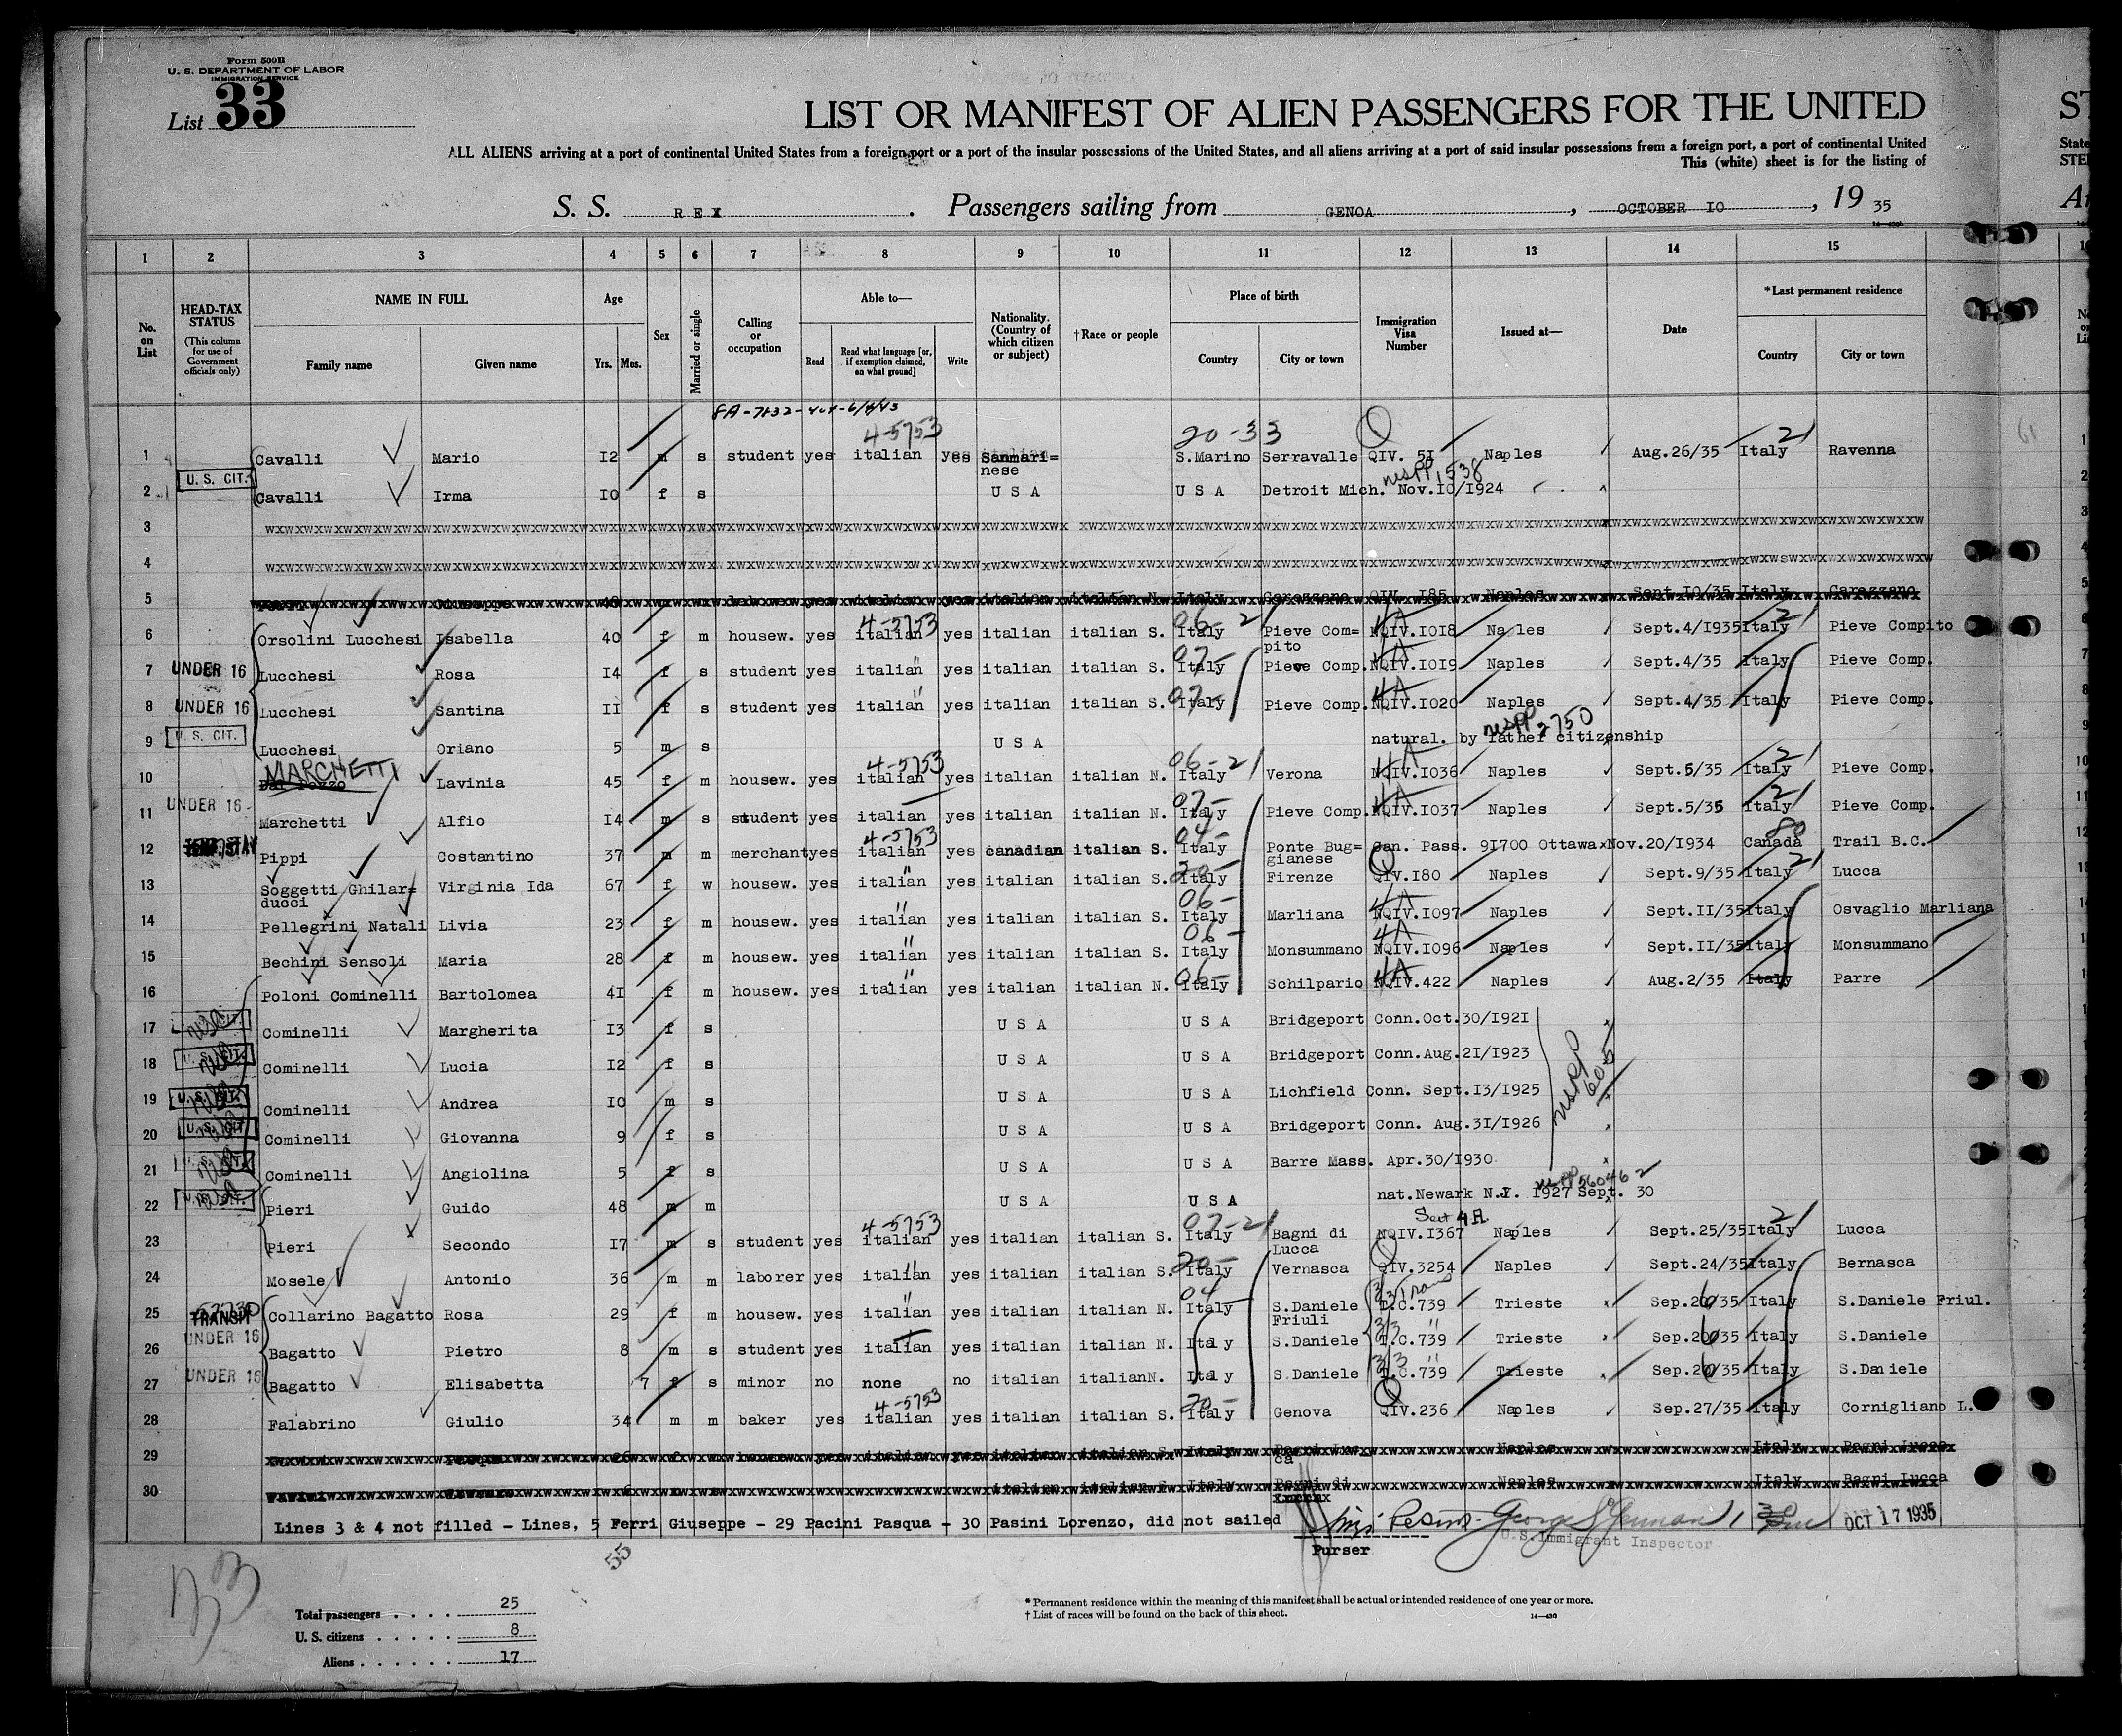 Form 500B
U. S. DEPARTMENT OF LABOR
IMMIGRATION SERVICE
List 33
LIST OR MANIFEST OF ALIEN PASSENGERS FOR THE UNITED
ST
ALL ALIENS arriving at a port of continental United States from a foreign port or a port of the insular possessions of the United States, and all aliens arriving at a port of said insular possessions from a foreign port, a port of continental United
State
This (white) sheet is for the listing of
STE
S. S. REX . Passengers sailing from GENOA , OCTOBER 10 , 19 35
1 2 3 4 5 6 7 8 9 10 11 12 13 14 15
No. on List
HEAD-TAX STATUS (This column for use of Government officials only)
NAME IN FULL Family name Given name
Age Yrs. Mos.
Sex
Married or single
Calling or occupation
Able to— Read Read what language [or, if exemption claimed, on what ground] Write
Nationality. (Country of which citizen or subject)
†Race or people
Place of birth Country City or town
Immigration Visa Number
Issued at—
Date
*Last permanent residence Country City or town
4-5753 20-33 Q 21
1 Cavalli Mario I2 m s student yes italian yes Sanmari=nese S.Marino Serravalle QIV. 5I Naples Aug.26/35 Italy Ravenna
2 U. S. CIT. Cavalli Irma I0 f s U S A U S A Detroit Mich. Nov.I0/I924
3 wxwxwxwxwxwxwxwxwxwxwxwxwxwxwx
4 wxwxwxwxwxwxwxwxwxwxwxwxwxwxwx
5 italian italian N. Italy QIV. I85 Naples Sept.I0/35 Italy
6 Orsolini Lucchesi Isabella 40 f m housew. yes italian yes italian italian S. Italy Pieve Com=pito NQIV.I0I8 Na les Sept.4/I935 Italy Pieve Compito
7 UNDER 16 Lucchesi Rosa I4 f s student yes italian yes italian italian S. Italy Pieve Comp. NQIV.I0I9 Naples Sept.4/35 Italy Pieve Comp.
8 UNDER 16 Lucchesi Santina II f s student yes italian yes italian italian S. Italy Pieve Comp. NQIV.I020 Naples Sept.4/35 Italy Pieve Comp.
9 U. S. CIT. Lucchesi Oriano 5 m s U S A natural. by father citizenship
10 MARCHETTI Dal Pozzo Lavinia 45 f m housew. yes italian yes italian italian N. Italy Verona NQIV.I036 Naples Sept.5/35 Italy Pieve Comp.
11 UNDER 16 Marchetti Alfio I4 m s student yes italian yes italian italian N. Italy Pieve Comp. NQIV.I037 Naples Sept.5/35 Italy Pieve Comp.
12 Pippi Costantino 37 m m merchant yes italian yes canadian italian S. Italy Ponte Bug=gianese Can. Pass. 9I700 Ottawa Nov.20/I934 Canada Trail B.C.
13 Soggetti Ghilar=ducci Virginia Ida 67 f w housew. yes italian yes italian italian S. Italy Firenze QIV.I80 Naples Sept.9/35 Italy Lucca
14 Pellegrini Natali Livia 23 f m housew. yes italian yes italian italian S. Italy Marliana NQIV.I097 Naples Sept.II/35 Italy Osvaglio Marliana
15 Bechini Sensoli Maria 28 f m housew. yes italian yes italian italian S. Italy Monsummano NQIV.I096 Naples Sept.II/35 Italy Monsummano
16 Poloni Cominelli Bartolomea 4I f m housew. yes italian yes italian italian N. Italy Schilpario NQIV.422 Naples Aug.2/35 Italy Parre
17 Cominelli Margherita I3 f s U S A U S A Bridgeport Conn.Oct.30/I92I
18 U. S. CIT. Cominelli Lucia I2 f s U S A U S A Bridgeport Conn.Aug.2I/I923
19 U. S. CIT. Cominelli Andrea I0 m s U S A U S A Lichfield Conn. Sept.I3/I925
20 U. S. CIT. Cominelli Giovanna 9 f s U S A U S A Bridgeport Conn. Aug.3I/I926
21 U. S. CIT. Cominelli Angiolina 5 f s U S A U S A Barre Mass. Apr.30/I930
22 U. S. CIT. Pieri Guido 48 m m U S A U S A nat.Newark N.J. I927 Sept. 30
23 Pieri Secondo I7 m s student yes italian yes italian italian S. Italy Bagni di Lucca NQIV.I367 Naples Sept.25/35 Italy Lucca
24 Mosele Antonio 36 m m laborer yes italian yes italian italian S. Italy Vernasca QIV.3254 Naples Sept.24/35 Italy Bernasca
25 TRANSIT Collarino Bagatto Rosa 29 f m housew. yes italian yes italian italian N. Italy S.Daniele Friuli T.C.739 Trieste Italy S.Daniele Friul.
26 UNDER 16 Bagatto Pietro 8 m s student yes italian yes italian italian N. Ital y S.Daniele T.C.739 Trieste Italy S.Daniele
27 UNDER 16 Bagatto Elisabetta 7 f s minor no none no italian italianN. Ital y S.Daniele T.C.739 Trieste Italy S.Daniele
28 Falabrino Giulio 34 m m baker yes italian yes italian italian S. Italy Genova QIV.236 Naples Sep.27/35 Italy Cornigliano L.
29 italian italian S. Italy Naples Italy Bagni Lucca
30 italian italian S. Italy Bagni di Naples Italy Bagni Lucca
Lines 3 & 4 not filled - Lines, 5 Ferri Giuseppe - 29 Pacini Pasqua - 30 Pasini Lorenzo, did not sailed
Purser
U.S. Immigrant Inspector
OCT 17 1935
55
Total passengers . . . . . 25
U. S. citizens . . . . . 8
Aliens . . . . . . 17
* Permanent residence within the meaning of this manifest shall be actual or intended residence of one year or more.
† List of races will be found on the back of this sheet.
14—430